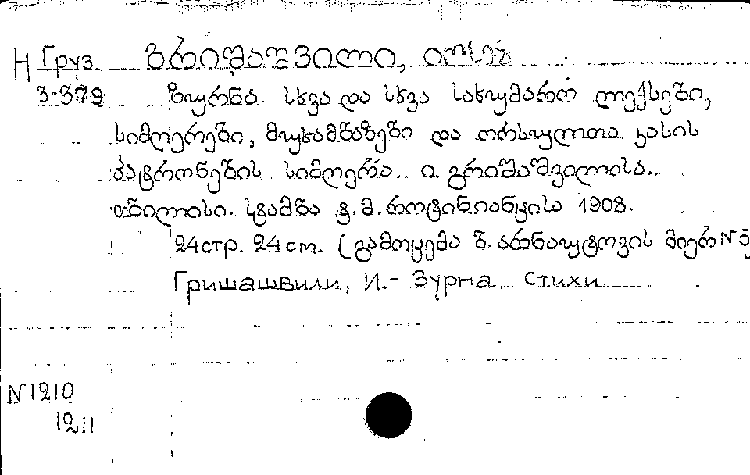 Н Груз გრიშაშვილი, იოსებ
3-379 ზურნა. სხვა და სხვა სახუმარო ლექსები,
სიმღერები, მუხამბაზები და ორსულთა კასის
პატრონების სიმღერა. ი. გრიშაშვილისა.
თბილისი. სტამბა ვ. მ. როტინიანცისა 1908.
24стр. 24 см. (გამოცემა ზ. არნაუტოვის მიერ №5
Гришашвили, И.- Зурна Стихи
N1210
1211